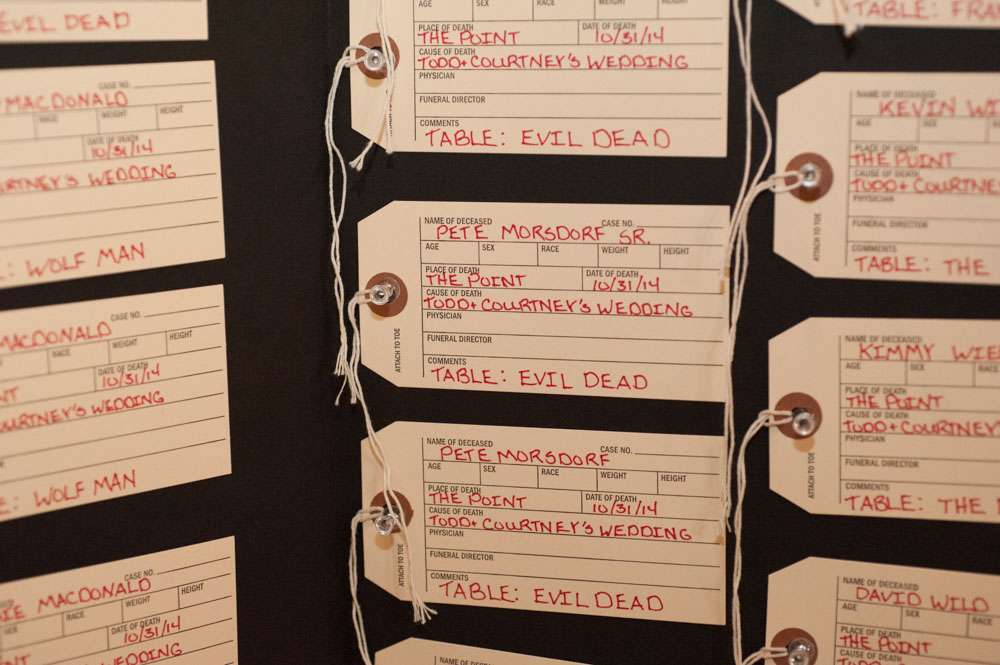 EVIL DEAD
CASE NO.
MACDONALD
RACE WEIGHT HEIGHT
DATE OF DEATH
10/31/14
WEDDING
: WOLF MAN
CASE NO.
MACDONALD
RACE WEIGHT HEIGHT
DATE OF DEATH
10/31/14
COURTNEY'S WEDDING
: WOLF MAN
CASE NO.
MACDONALD
SEX RACE WEIGHT HEIGHT
DATE OF DEATH
10/31/14
WEDDING
AGE SEX RACE WEIGHT HEIGHT
PLACE OF DEATH DATE OF DEATH
THE POINT 10/31/14
CAUSE OF DEATH
TODD + COURTNEY'S WEDDING
PHYSICIAN
FUNERAL DIRECTOR
COMMENTS
TABLE: EVIL DEAD
NAME OF DECEASED CASE NO.
PETE MORSDORF SR.
AGE SEX RACE WEIGHT HEIGHT
PLACE OF DEATH DATE OF DEATH
THE POINT 10/31/14
CAUSE OF DEATH
TODD + COURTNEY'S WEDDING
PHYSICIAN
FUNERAL DIRECTOR
ATTACH TO TOE
COMMENTS
TABLE: EVIL DEAD
NAME OF DECEASED CASE NO.
PETE MORSDORF
AGE SEX RACE WEIGHT HEIGHT
PLACE OF DEATH DATE OF DEATH
THE POINT 10/31/14
CAUSE OF DEATH
TODD + COURTNEY'S WEDDING
PHYSICIAN
FUNERAL DIRECTOR
ATTACH TO TOE
COMMENTS
TABLE: EVIL DEAD
NAME OF DECEASED
TABLE:
NAME OF DECEASED
KEVIN
AGE SEX
PLACE OF DEATH
THE POINT
CAUSE OF DEATH
TODD +
PHYSICIAN
FUNERAL DIRECTOR
ATTACH TO TOE
COMMENTS
TABLE: THE
NAME OF DECEASED
KIMMY
AGE SEX RACE
PLACE OF DEATH
THE POINT
CAUSE OF DEATH
TODD +
PHYSICIAN
FUNERAL DIRECTOR
ATTACH TO TOE
COMMENTS
TABLE: THE
NAME OF DECEASED
DAVID
AGE SEX RACE
PLACE OF DEATH
THE POINT
CAUSE OF DEATH